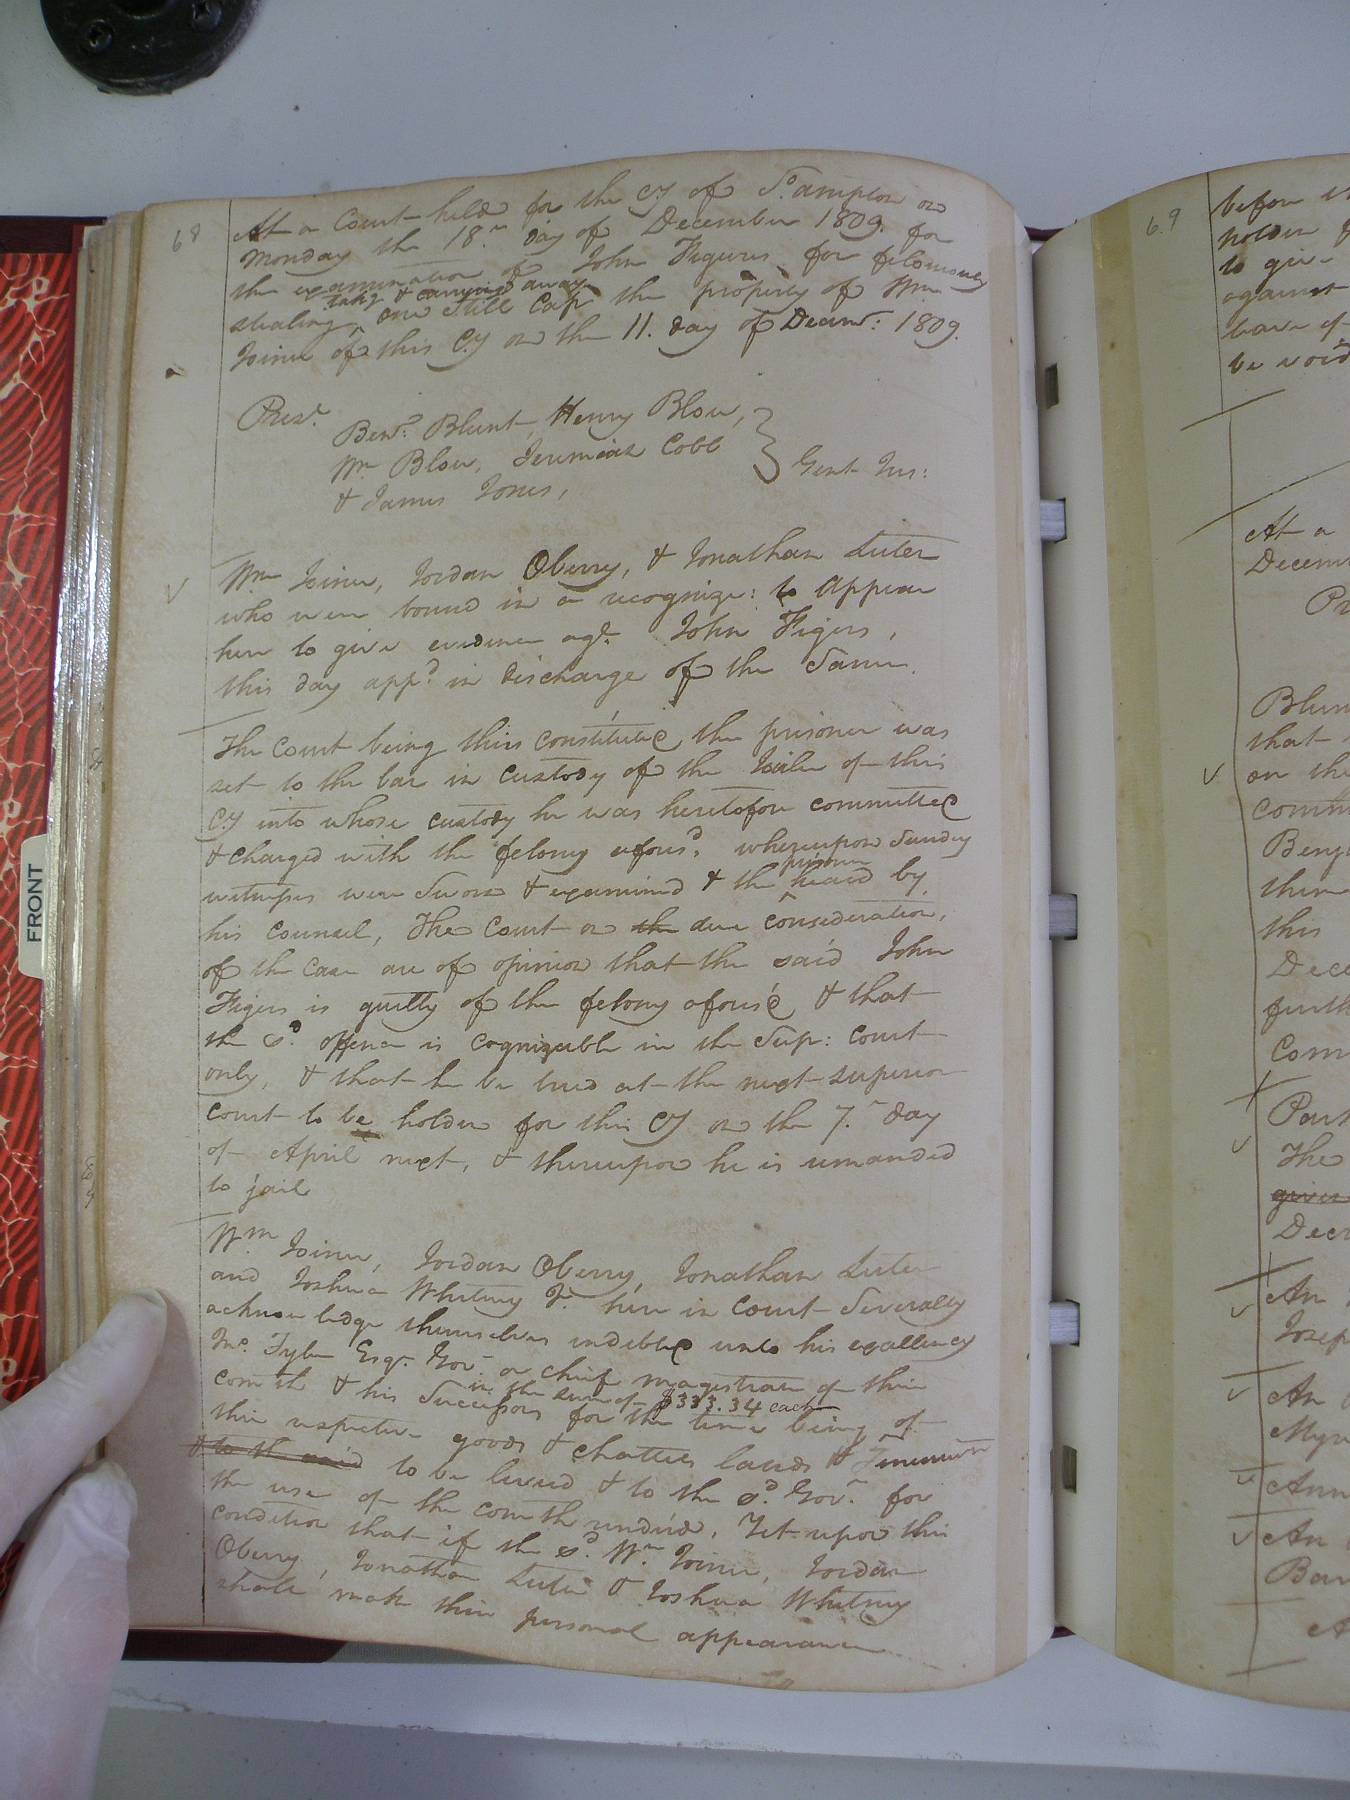 68
At a Court held for the Cy of So.ampton on
Monday the 18.th day of December 1809. for
the examination of John Figures for feloniously
stealing, taking & carrying away one Still Cap the property of Wm
Joiner of this Cy on the 11. day of Decemr: 1809.
Prest.
Benj. Blunt, Henry Blow,
Wm Blow, Jeremiah Cobb
& James Jones, } Gent. Jus:
Wm Joiner, Jordan Oberry, & Jonathan Luter
who were bound in a recognize: to appear
here to give evidence agt. John Figers,
this day appd. in discharge of the Same.
The Court being thus constituted, the prisoner was
set to the bar in custody of the Jailer of this
Cy into whose custody he was heretofore committed
& charged with the felony afores.d whereupon Sundry
witnesses were Sworn & examined & the prisoner heard by
his Counsel, The Court on the due consideration,
of the Case are of opinion that the said John
Figers is guilty of the felony afores'd & that
the sd. offence is cognizable in the Sup: Court
only, & that he be tried at the next Superior
Court to be holden for this Cy on the 7.th day
of April next, & thereupon he is remanded
to jail
Wm Joiner, Jordan Oberry, Jonathan Luter
and Joshua Whitney Jr. here in Court Severally
acknowledge themselves indebted unto his excellency
Jno. Tyler Esqr. Govr. or chief magistrate of this
com'th & his Successors for the time being in the sum of $333.34 each of
their respective goods & chattles lands & Tenements
& to the said to be levied & to the sd. Govr. for
the use of the com'th rendered. Yet upon this
condition that if the sd. Wm Joiner, Jordan
Oberry, Jonathan Luter & Joshua Whitney
shall make their personal appearance
69
before th
holden f
to give
against
leave of
be void
At a
Decem
Pr
Blun
that
on the
comm
Benj
them
this
Dece
furth
Com
Part
The
given
Dece
An
Josep
An
Myr
Ann
An
Bar
FRONT